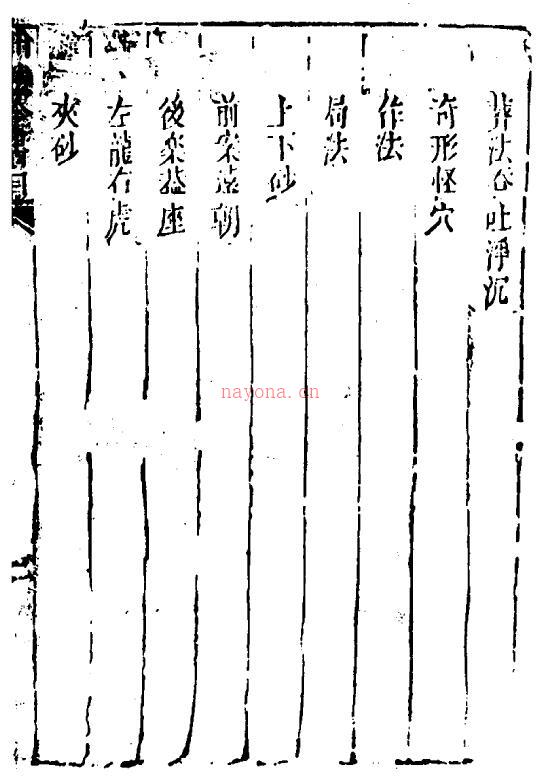 葬法吞吐浮沉
奇形怪穴
作法
局法
上下砂
前案遠朝
後樂益座
左龍右虎
夾砂
nayona.cn